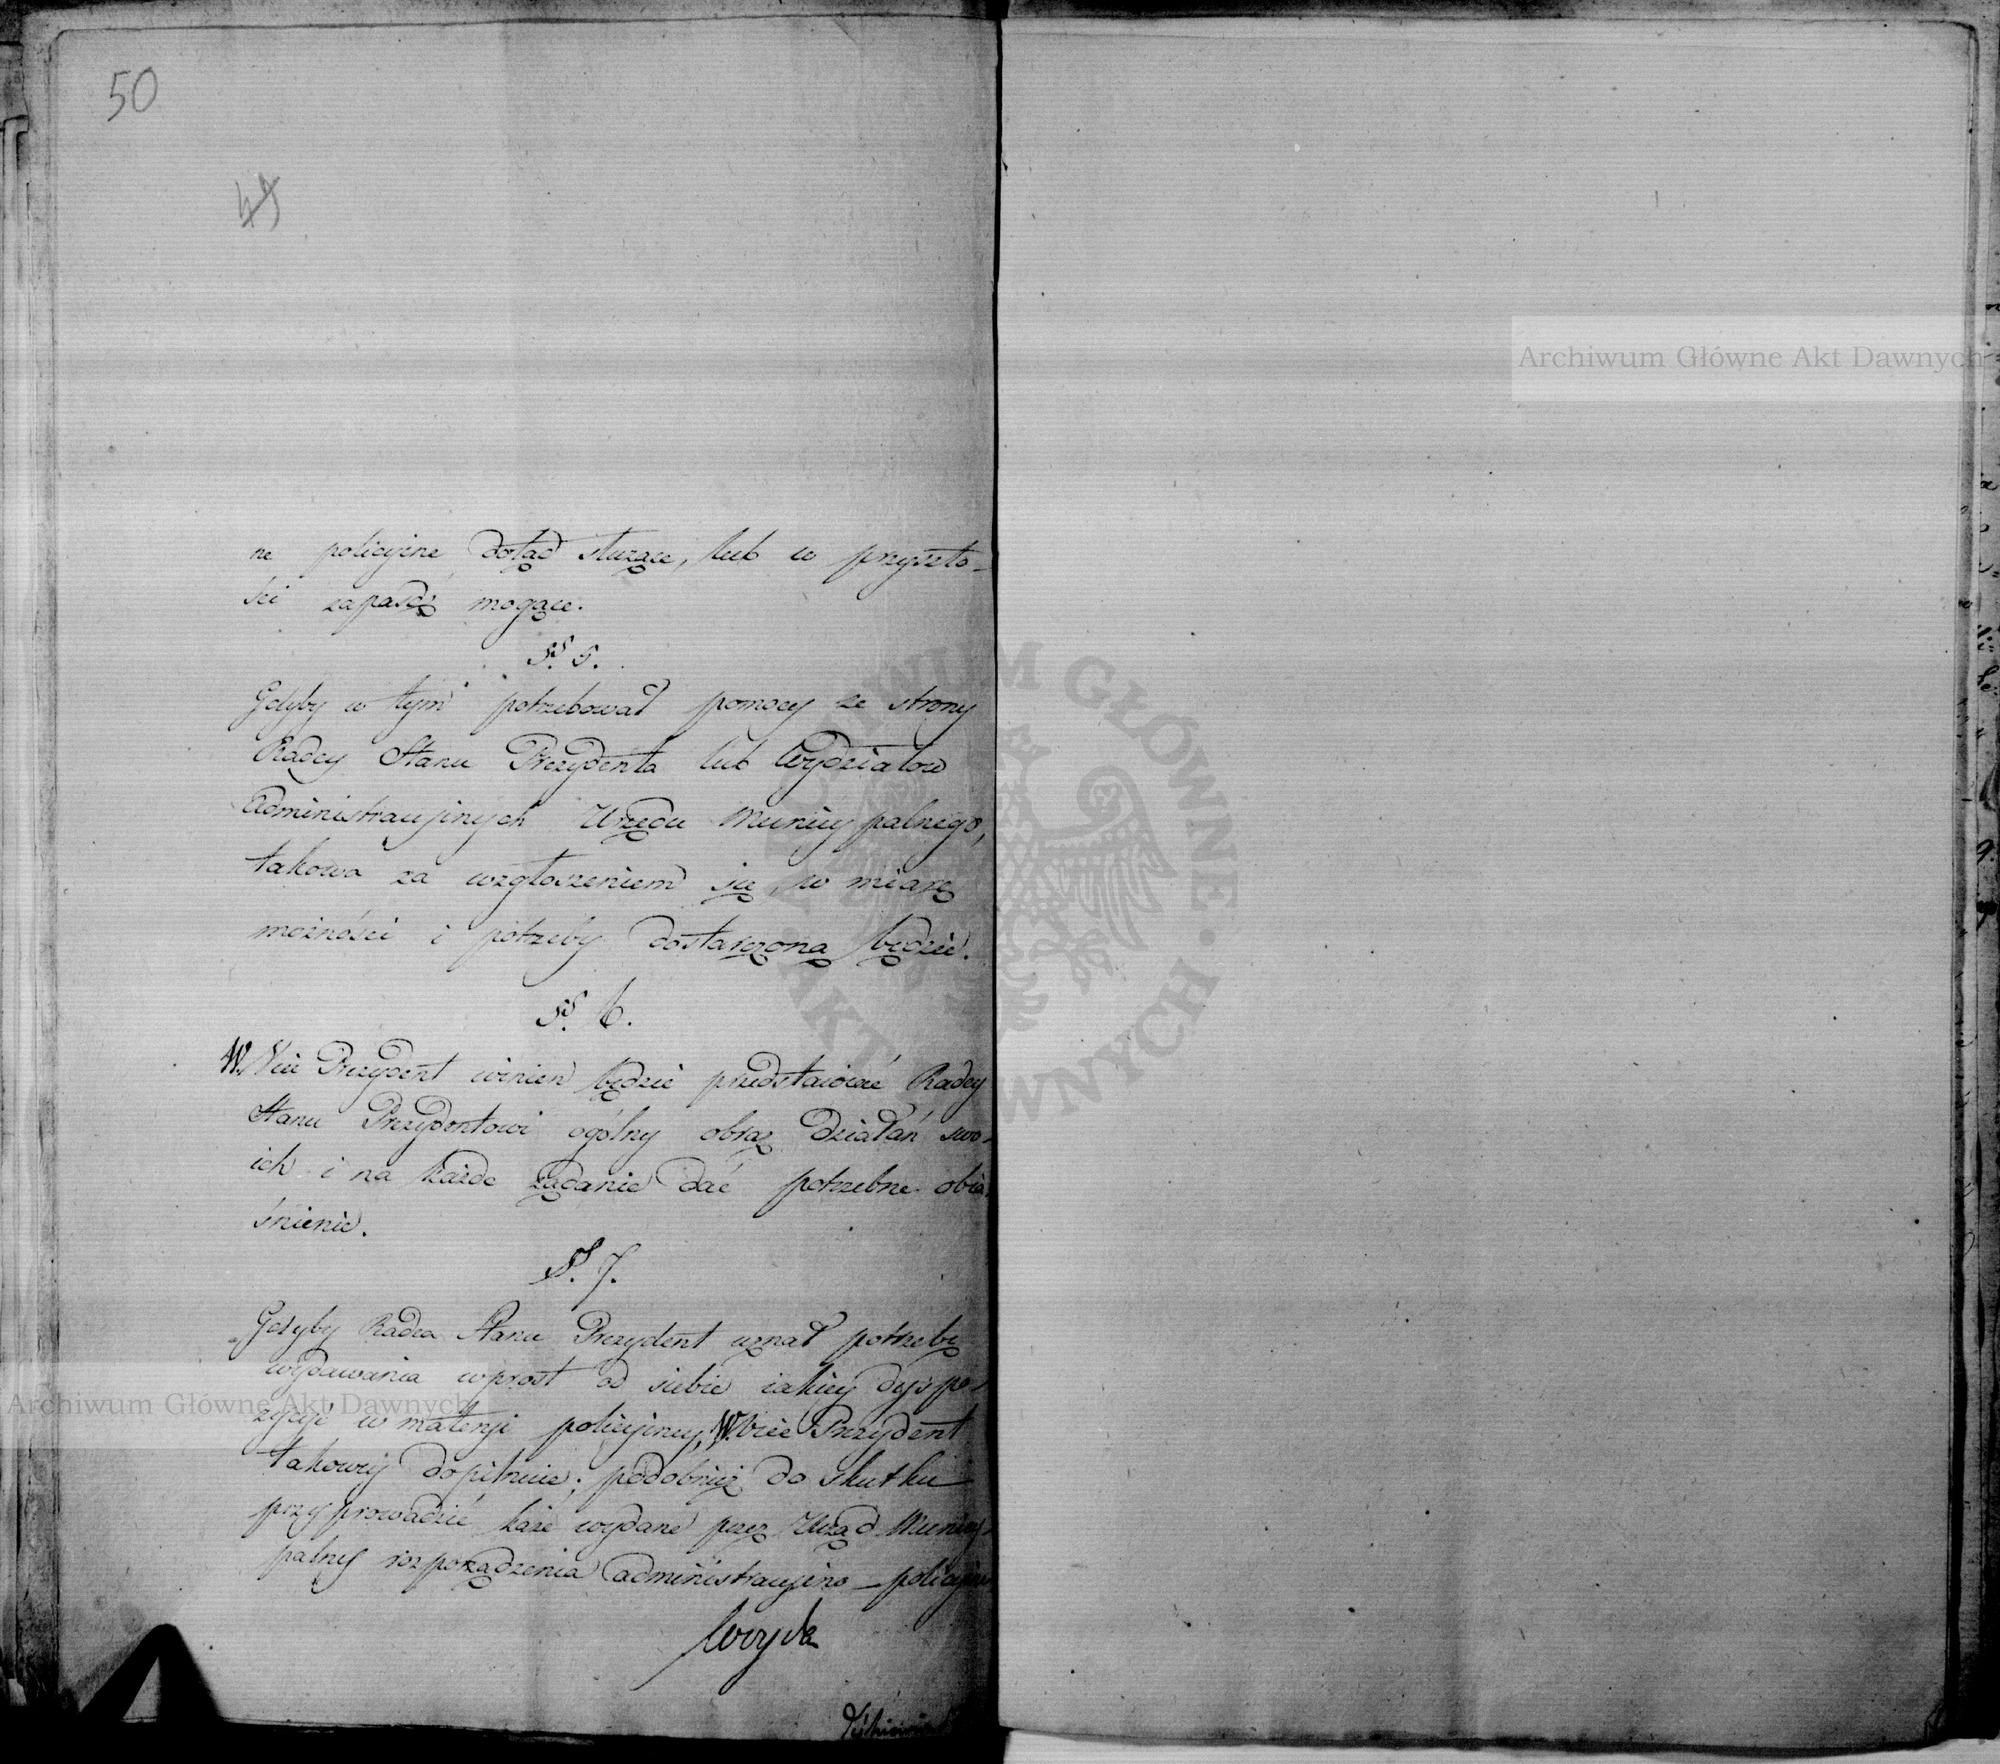 50
49
ne policyine dotąd służące, lub w przyszło-
ści zapaść mogące.
§. 5.
Gdyby w tym potrzebował pomocy ze strony
Radcy Stanu Prezydenta lub Wydziałow
Administracyjnych Urzędu Municypalnego,
takowa za wzgłoszeniem się, w miarę
możności i potrzeby dostarczoną będzie.
§. 6.
W. Vice Prezydent winien będzie przedstawiać Radcy
Stanu Prezydentowi ogólny obraz działań swo-
ich i na każde żądanie dać potrzebne obia-
śnienie.
§. 7.
Gdyby Radca Stanu Prezydent uznał potrzebę
wydawania wprost od siebie iakiey dyspo-
zycyi w materyi policyiney, W. Vice Prezydent
takowey dopilnuie; podobnież do skutku
przyprowadzić każe wydane przez Urząd Municy-
palny rozporządzenia administracyino-policyine
Archiwum Główne Akt Dawnych
Archiwum Główne Akt Dawnych
ARCHIWUM GŁÓWNE AKT DAWNYCH